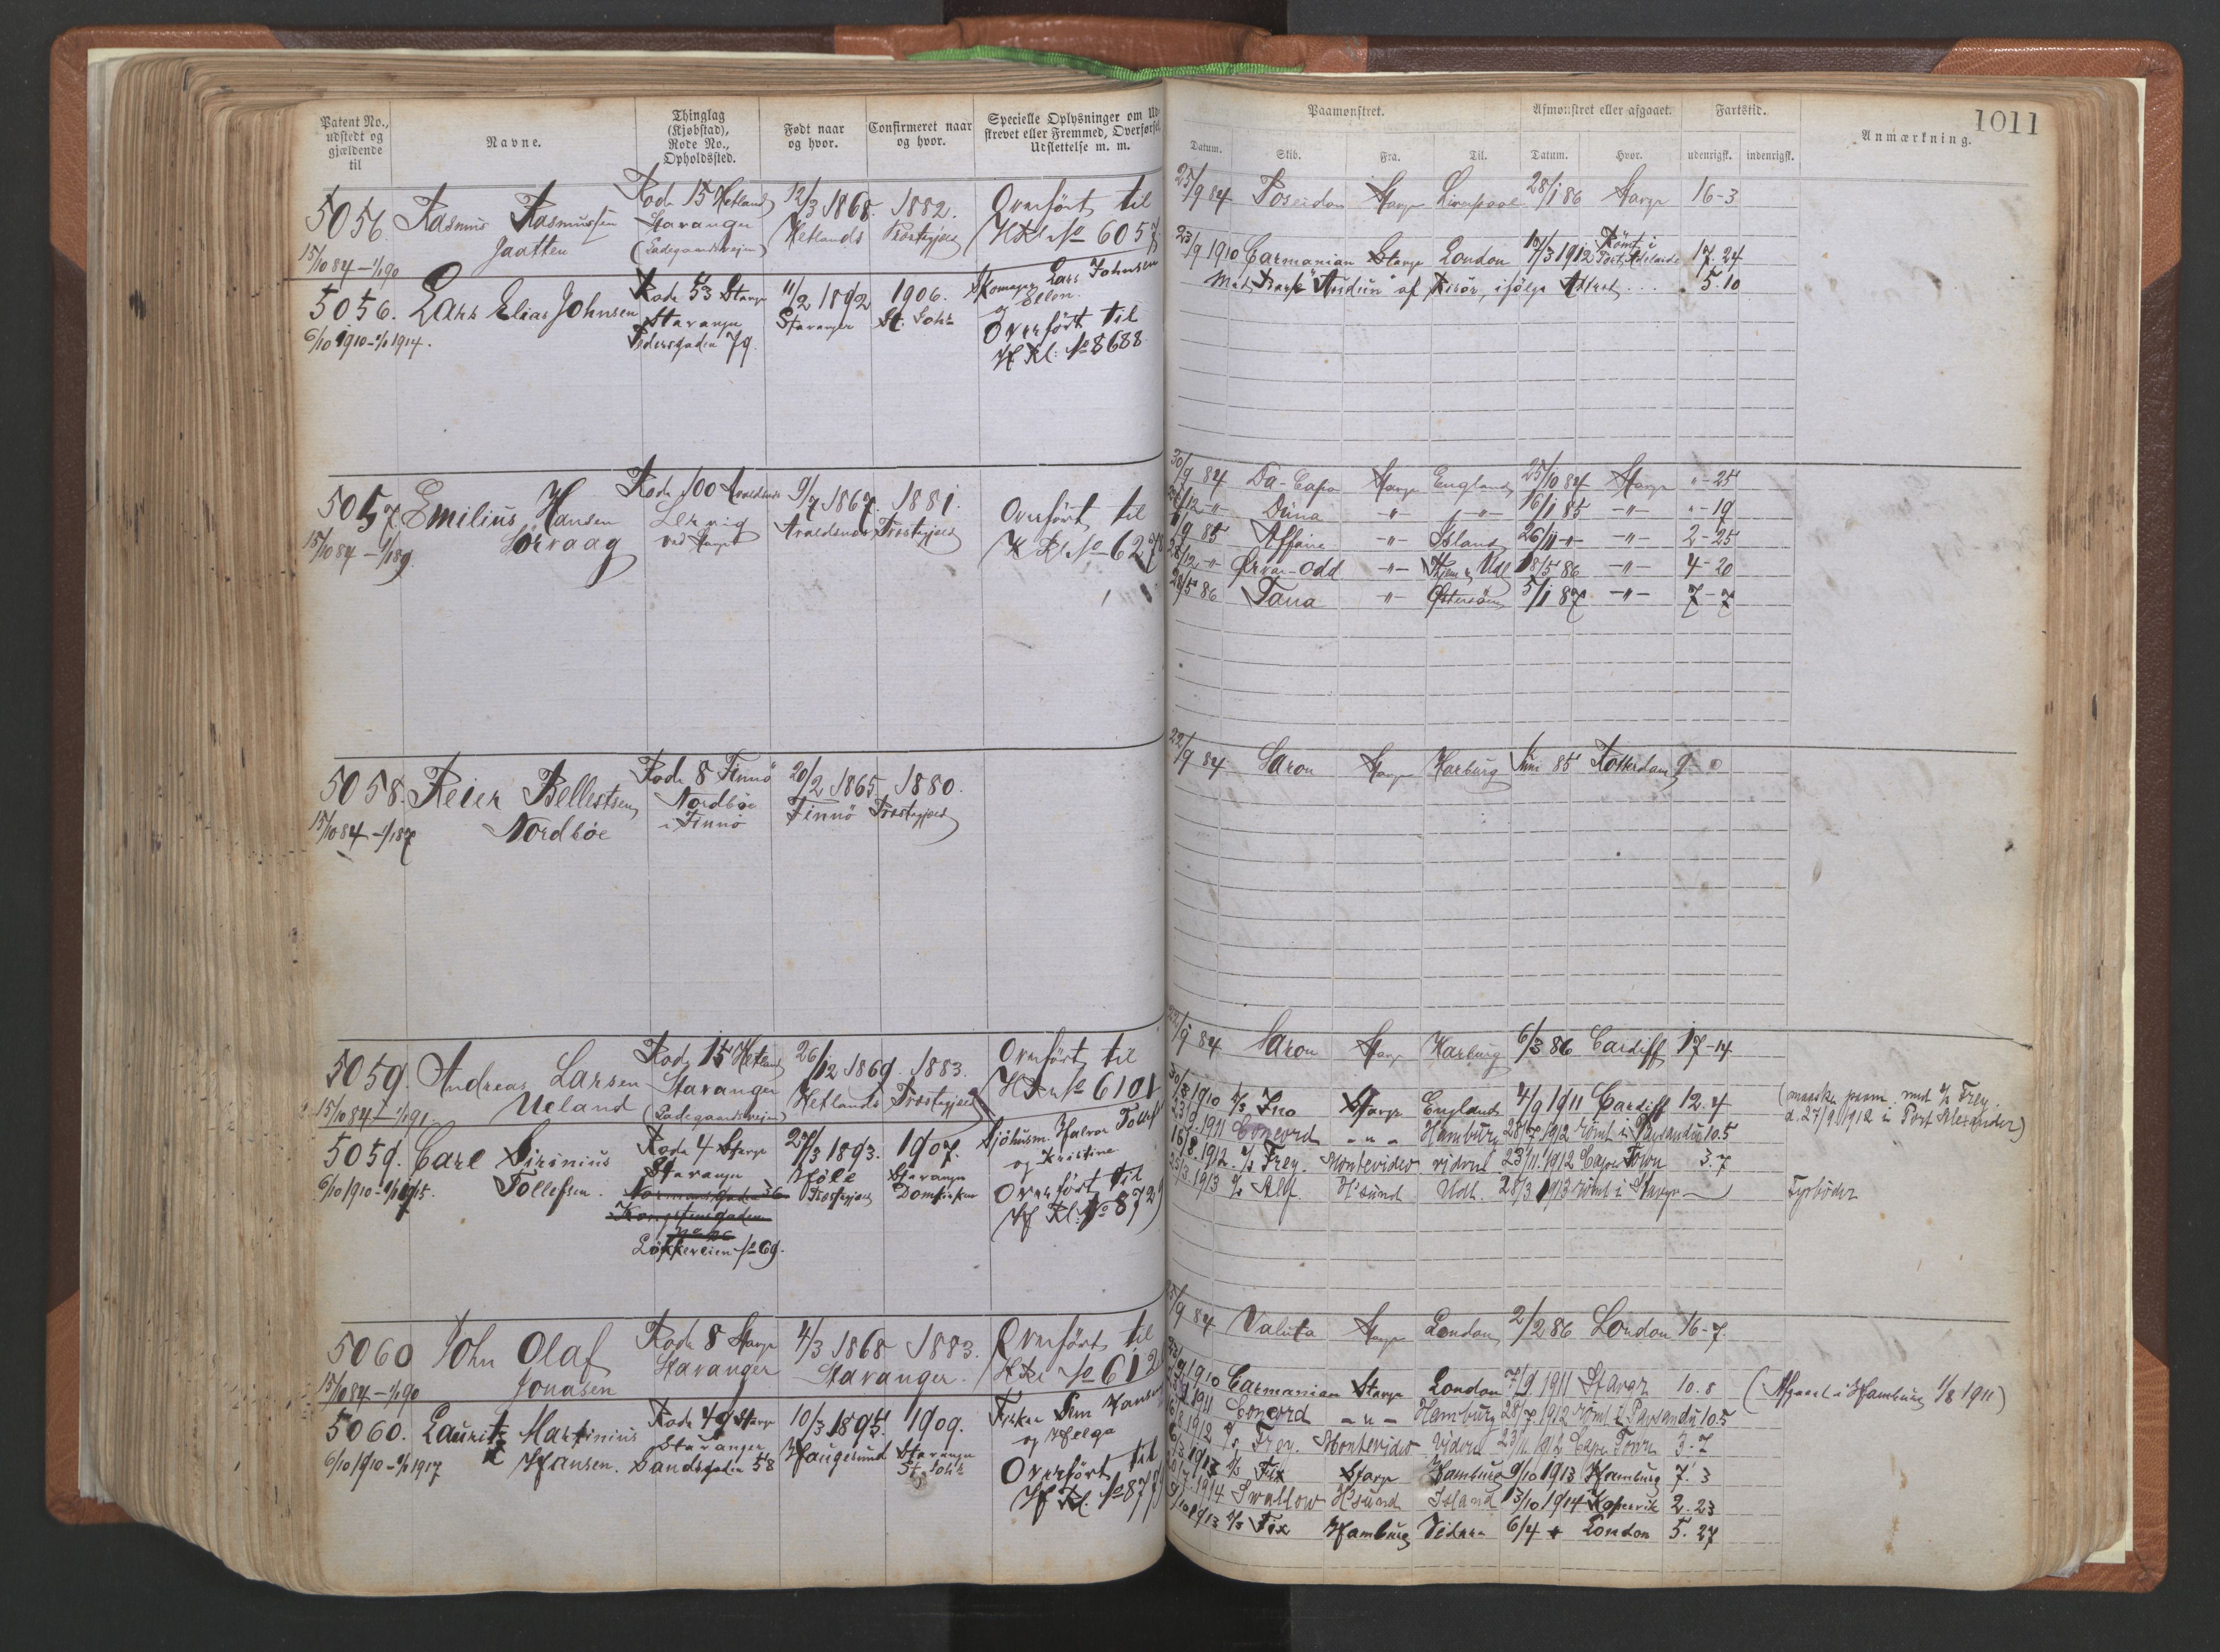 Patent No.,
udstedt og
gjældende
til
Navne.
Thinglag
(Kjøbstad),
Rode No.,
Opholdssted.
Født naar
og hvor.
Confirmeret naar
og hvor.
Specielle Oplysninger om Ud-
skrevet eller Fremmed, Overførsel,
Udslettelse m. m.
5056 Rasmus Rasmussen
Jaatten
15/10 84 – 1/1 90
Rode 15 Hetland
Stavanger
(Ladegaardsveien)
12/3 1868.
Hetlands
1882.
Provstegjeld
Overført til
H Kl. No 6057
5056. Lars Elias Johnsen
6/10 1910 – 1/1 1914.
Rode 53 Stavgr
Stavanger
Pedersgaden 79.
11/2 1892
Stavanger
1906.
St. Joh's
Skomager Lars Johnsen
og Ellen.
Overført til
Hf Kl: No 8688.
5057 Emilius Hansen
Sørvaag
15/10 84 – 1/1 89
Rode 100 Avaldsnes
Lervig
ved Stavgr
9/7 1867.
Avaldsnes
1881.
Provstegjeld
Overført til
H Kl. No 627
5058. Reier Bellestsen
Nordbøe
15/10 84 – 1/1 87
Rode 8 Finnö
Nordbøe
i Finnö
20/2 1865
Finnö
1880.
Provstegjeld
5059. Andreas Larsen
Ueland
15/10 84 – 1/1 91.
Rode 15 Hetland
Stavanger
(Ladegaardsveien)
26/12 1869.
Hetlands
1883.
Provstegjeld
Overført til
H Kl No 6101
5059. Carl Sirinius
Tollefsen.
6/10 1910 – 1/1 1915.
Rode 4 Stavgr
Stavanger
Normandsgaden 36
Kongstensgaden
Løkkeveien No 69.
27/3 1893.
Høle
Provstegjeld
1907.
Stavanger
Domkirken
Sjøhusm. Halvor Tollefs
og Kristine
Overført til
Hf Kl: No 872
5060 John Olaf
Jonasen
15/10 84 – 1/1 90
Rode 8 Stavgr
Stavanger
4/3 1868 1883.
Stavanger.
Overført til
H Kl No 612
5060. Lauritz Martinius
Hansen.
6/10 1910 – 1/1 1917
Rode 49 Stavgr
Stavanger
Sandsgaden 58
10/3 1895.
Haugesund
1909.
Stavanger
St. Joh's
Fisker Sem Hansen
og Helga
Overført til
Hf Kl. No 877
1011
Paamønstret.
Afmønstret eller afgaaet.
Fartstid.
Anmærkning.
Datum. Skib. Fra. Til. Datum. Hvor. udenrigsk. indenrigsk.
25/9 84 Poseidon Stavgr Liverpool 28/1 86 Stavgr 16-3
23/9 1910 Carmanian Stavgr London 17/3 1912 Rømt i Port Adelaide 17. 24
Med Bark "Audun" af Risør, ifølge Attest . . . 5. 10
30/9 84 Da-Capo Stavgr England 25/10 84 Stavgr " - 25
/12 -"- Duna -"- -"- 16/1 85 -"- " - 19
/9 85 Affaire -"- Island 26/11 -"- -"- 2-25
/12 -"- Ørvar-Odd -"- Hjem & Udl 18/5 86 -"- 4-20
28/5 86 Tana -"- Østersøen 5/1 87 -"- 7-7
22/9 84 Saron Stavgr Harburg Juni 85 Rotterdam 9 -
22/9 84 Saron Stavgr Harburg 6/3 86 Cardiff 17-14
30/8 1910 s/s Ino Stavgr England 4/9 1911 Cardiff 12. 4 (maaske paam. med s/s Frey.
d. 27/9 1912 i Port Alexander)
23/9 1911 Concord - " - Hamburg 28/7. 1912 rømt i Paysandu 10. 5
16/8. 1912. s/s Frey. Montevideo videre 23/11. 1912 Cape Town 3. 7
25/3. 1913 s/s Alf H'sund Udl. 28/3 1913 rømt i Stavgr Fyrbøder
25/9 84 Valuta Stavgr London 2/2 86 London 16-7.
23/9 1910 Carmanian Stavgr London 7/9. 1911 Stavgr 10. 8 (Afgaaet i Hamburg 1/8 1911)
1911 Concord - " - Hamburg 28/7. 1912 rømt i Paysandu 10. 5
1912 s/s Frey. Montevideo videre 23/11. 1912 Cape Town 3. 7
1913 s/s Fix Stavgr Hamburg 9/10 1913 Hamburg 7. 3
1914 Swallow H'sund Island 13/10 1914 Kopervik 2. 23
9/10 1913 s/s Fix Hamburg Videre 6/4 London 5. 27